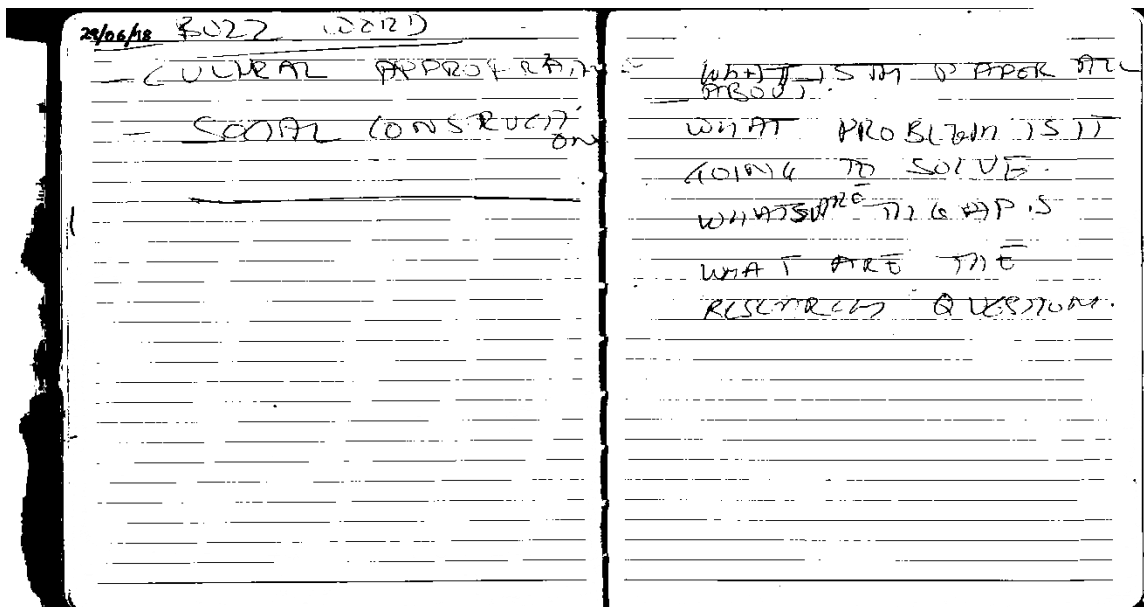 29/06/18 BUZZ WORD
- CULTURAL APPROPRIATION
- SOCIAL CONSTRUCTI
ON
WHAT IS TH PAPER ALL
ABOUT.
WHAT PROBLEM IS IT
GOING TO SOLVE.
WHATS ARE TH GAP.S
WHAT ARE THE
RESEARCH QUESTION.